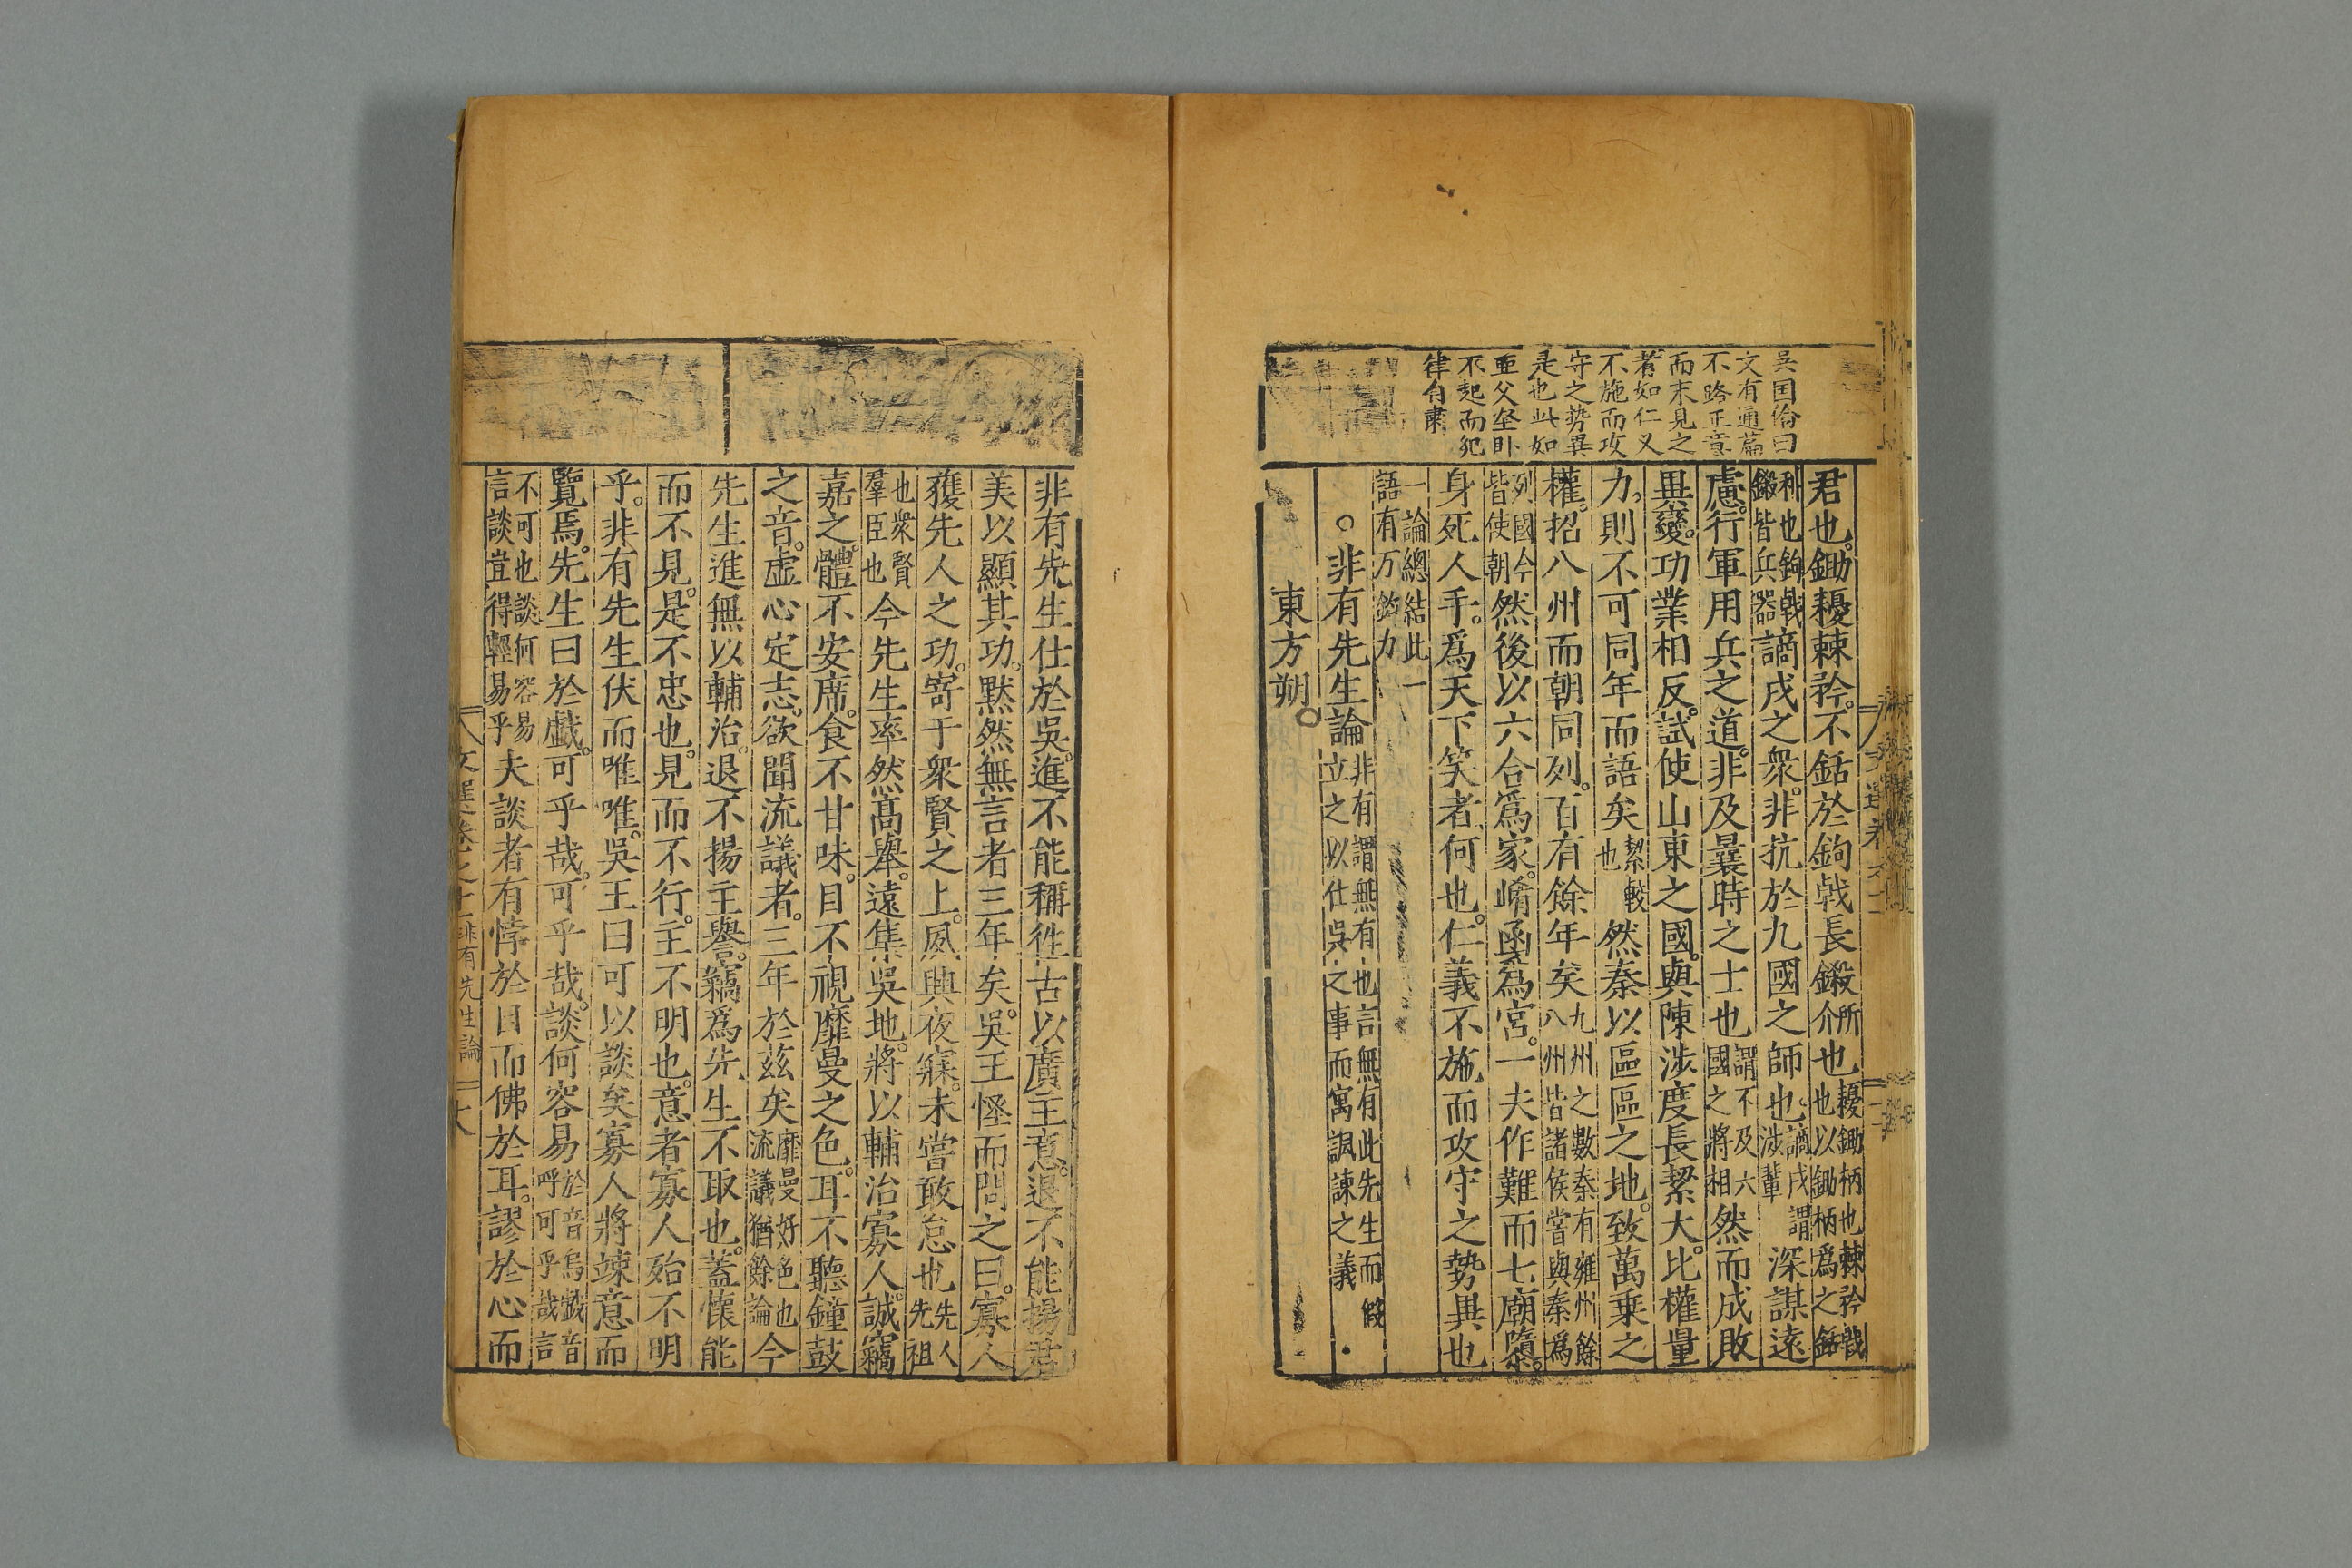 吳囯倫曰
文有通篇
不露正意
而末見之
者如仁义
不施而攻
守之势異
是也此如
亜父坚卧
不起而犯
律自肅
君也。鋤耰棘矜。不銛於鉤戟長鎩所介也耰鋤柄也棘矜戟也以鋤柄爲之銛
利也鉤戟鎩皆兵器謫戍之衆。非抗於九國之師也。謫戍謂涉輩深謀遠
慮。行軍用兵之道。非及曩時之士也謂不及六國之將相然而成敗
異變。功業相反。試使山東之國。與陳涉度長絜大。比權量
力。則不可同年而語矣絜較也然秦以區區之地。致萬乗之
權。招八州而朝同列。百有餘年矣九州之數秦有雍州餘八州皆諸侯嘗與秦爲
列國今皆使朝然後以六合爲家。崤函爲宫。一夫作難而七廟隳。
身死人手。爲天下笑者。何也。仁義不施而攻守之勢異也
一論總結此一語有万鈞力
○非有先生論非有謂無有也言無有此先生而假立之以仕吳之事而寓諷諫之義
東方朔。
非有先生仕於吳。進不能稱徃古以廣主意。退不能揚君
美以顯其功。黙然無言者三年矣。吳王怪而問之曰。寡人
獲先人之功。寄于衆賢之上。夙興夜寐。未嘗敢怠也先人先祖
也衆賢羣臣也今先生率然髙舉。遠集吳地。將以輔治寡人。誠竊
嘉之。體不安席。食不甘味。目不視靡曼之色。耳不聽鐘鼓
之音。虚心定志。欲聞流議者。三年於兹矣靡曼好色也流議猶餘論今
先生進無以輔治。退不揚主譽。竊爲先生不取也。葢懷能
而不見。是不忠也。見而不行。主不明也。意者寡人殆不明
乎。非有先生伏而唯唯。吳王曰可以談矣寡人將竦意而
覽焉。先生曰於戲。可乎哉。可乎哉。談何容易於音烏戲音呼可乎哉言
不可也談何容易言談豈得輕易乎夫談者有悖於目而佛於耳。謬於心而
文選卷之十 非有先生論